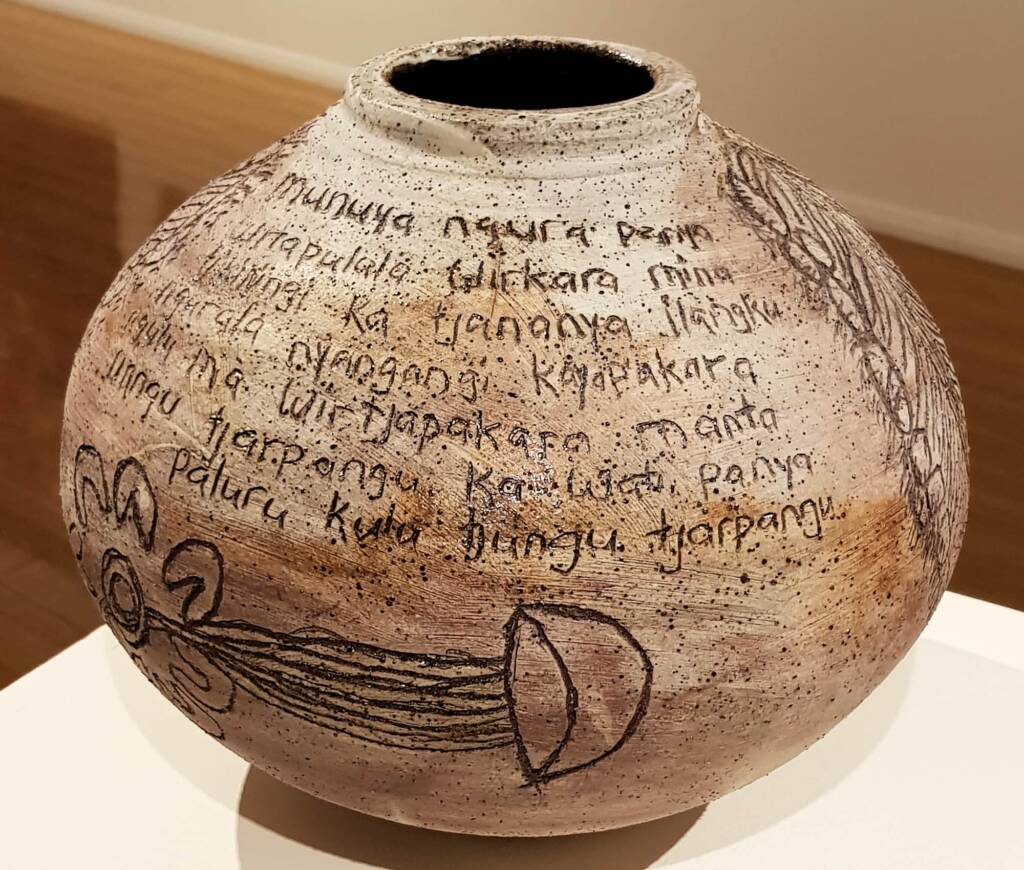 munuya ngura panya
urrapulala wirkara mina
tjuningi ka tjananya ilangku
ngarala nyangangi kayapakara
ngulu ma wirtjapakara manta
unngu tjarpangu. Ka wati panya
paluru kulu tjungu tjarpangu.